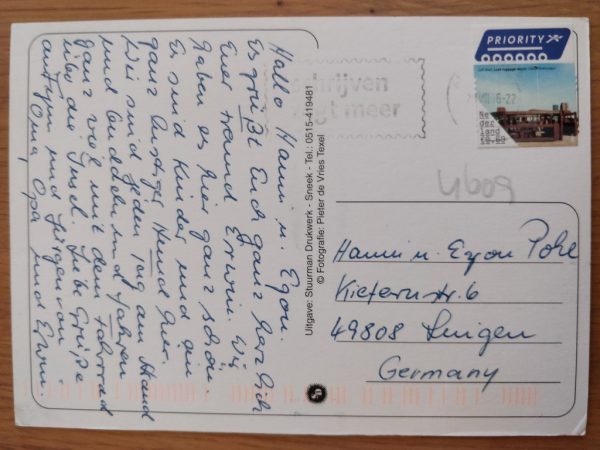 Hallo Hanni u. Egon.
Es grüßt Euch ganz herzlich
Euer Freund Erwin. Wir
haben es hier ganz schön.
Es sind Kinder und ein
ganz lustiger Hund hier.
Wir sind jeden Tag am Strand
und buddeln und fahren
ganz viel mit dem Fahrrad
über die Insel. Liebe Grüße
und Jürgen von
Oma, Opa und Erwin
Uitgave: Stuurman Drukwerk - Sneek - Tel.: 0515-419481
© Fotografie: Pieter de Vries Texel
schrijven
gt meer
PRIORITY
Ne
der
land
Hanni u. Egon Pohl
Kiefernstr. 6
49808 Lingen
Germany